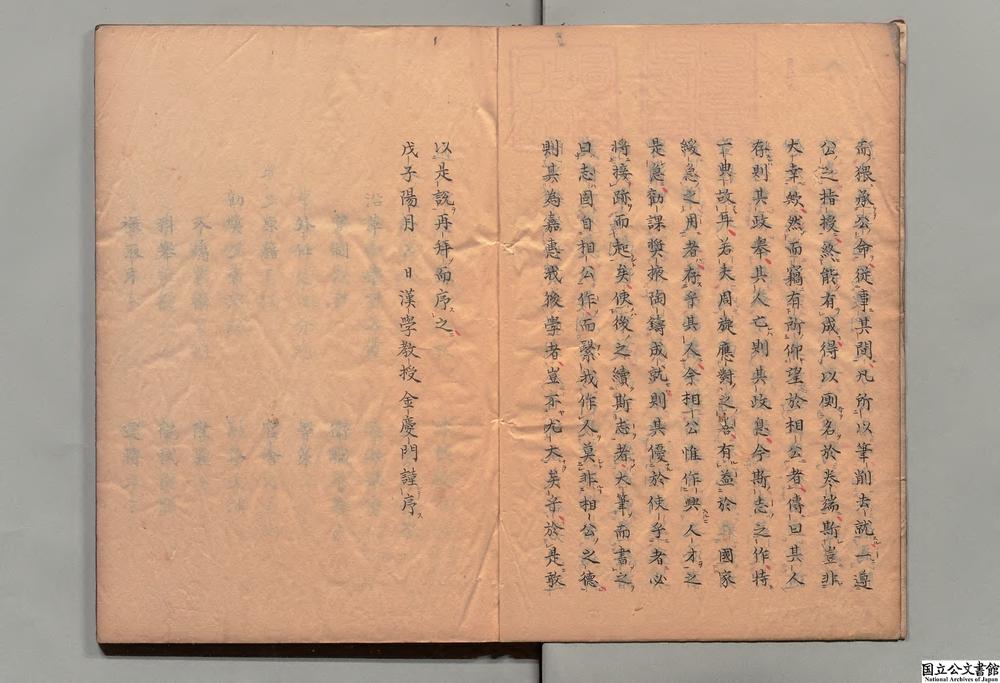 而猥承公命從事其間凡所以筆削去就一遵
公之指授然能有成得以厠名於卷端斯豈非
大幸歟然而竊有所仰望於相公者傳曰其人
存則其政擧其人亡則其政息今斯志之作特
一典故耳若夫周旋應對之言有益於國家
緩急之用者存乎其人今相公惟作興人才之
是急勸課奬掖陶鑄成就則其優於使乎者必
將接跡而起矣使後之續斯志者大筆而書之
曰志固自相公作而繄我作人莫非相公之德
則其為嘉惠我後學者豈不尤大矣乎於是敢
以是說再拜而序之
戊子陽月 日漢學教授金慶門謹序
国立公文書館
National Archives of Japan